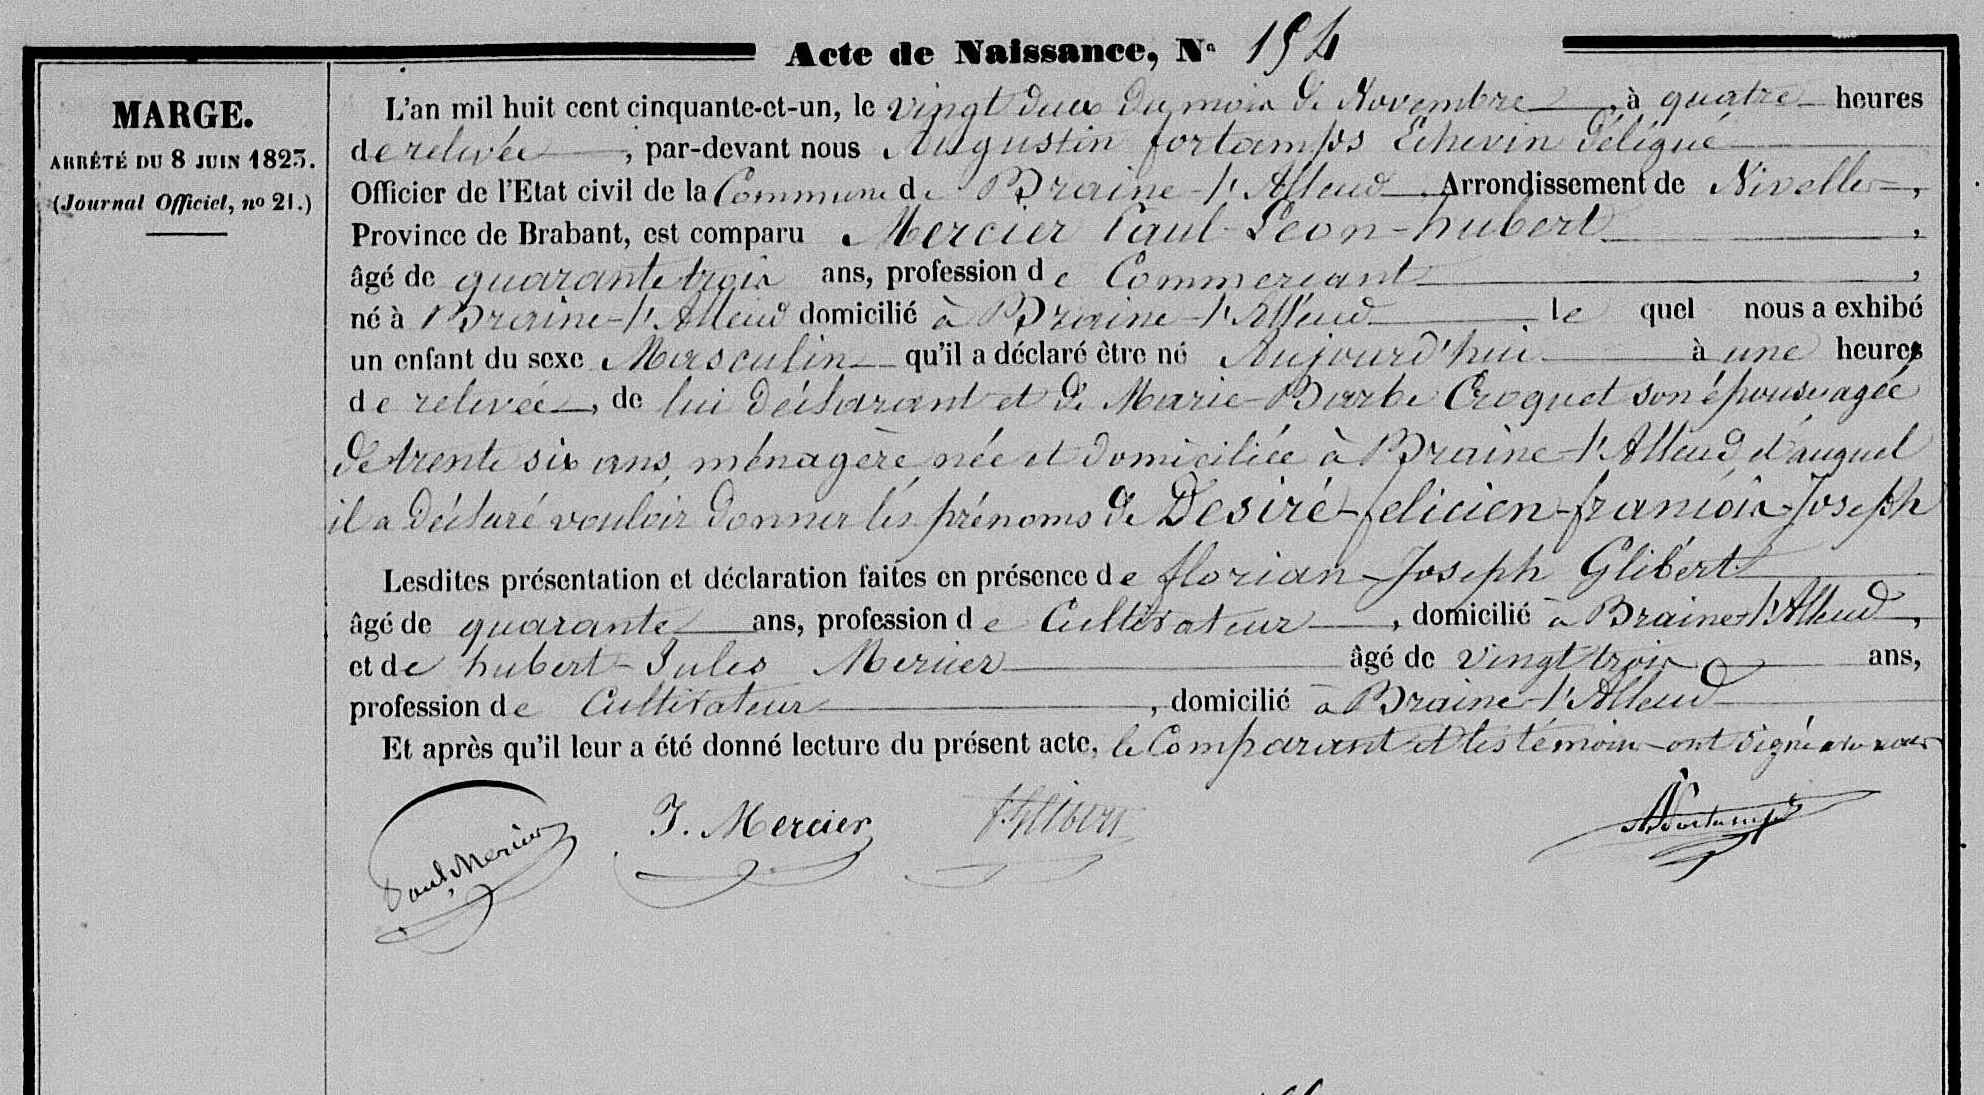 Acte de Naissance, No 154
MARGE.
ARRÊTÉ DU 8 JUIN 1823.
(Journal Officiel, no 21.)
L'an mil huit cent cinquante-et-un, le vingt deux du mois de Novembre, à quatre heures
de relevée, par-devant nous Augustin fortamps Echevin délégué
Officier de l'Etat civil de la Commune de Braine-l'Alleud Arrondissement de Nivelles,
Province de Brabant, est comparu Mercier Paul-Leon-hubert,
âgé de quarante trois ans, profession de Commercant,
né à Braine-l'Alleud domicilié à Braine-l'Alleud le quel nous a exhibé
un enfant du sexe Masculin qu'il a déclaré être né Aujourd'hui à une heures
de relevée, de lui déclarant et de Marie-Barbe Croquet son épouse agée
de trente six ans, ménagère née et domiciliée à Braine-l'Alleud, et auquel
il a déclaré vouloir donner les prénoms de Desiré-felicien-francois-Joseph
Lesdites présentation et déclaration faites en présence de florian-Joseph Glibert
âgé de quarante ans, profession de Cultivateur, domicilié à Braine-l'Alleud,
et de hubert-Jules Mercier âgé de vingt trois ans,
profession de Cultivateur, domicilié à Braine-l'Alleud
Et après qu'il leur a été donné lecture du présent acte, le Comparant et les témoins ont signé avec nous
Paul Mercier J. Mercier f. Glibert A Fortamps